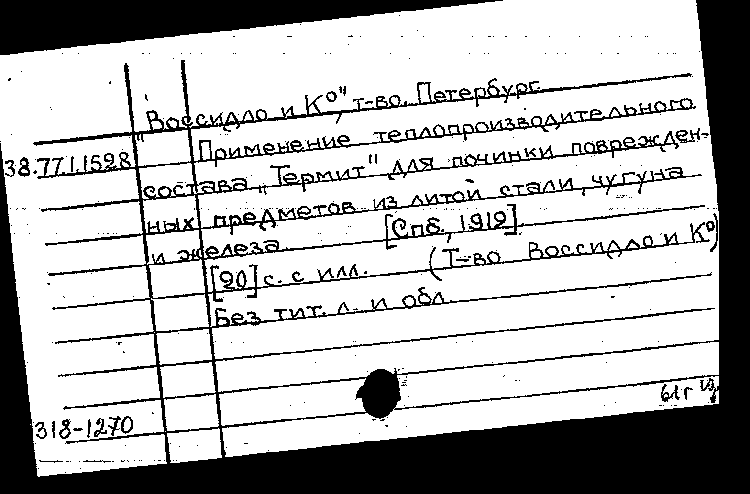 "Воссидло и К°", т-во. Петербург.
38.77.1.1528 Применение теплопроизводительного
состава "Термит" для починки поврежден-
ных предметов из литой стали, чугуна
и железа. [Спб, 1912].
[20] с. с илл. (Т-во Воссидло и К°)
Без тит. л. и обл.
318-1270